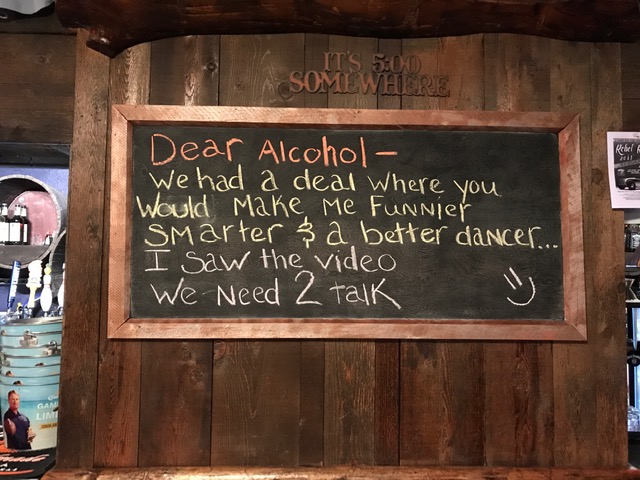 IT'S 5:00
SOMEWHERE
Dear Alcohol -
We had a deal where you
Would Make Me Funnier
SMarter & a better dancer...
I Saw the video
We Need 2 Talk
Rebel R
GAM
LIM